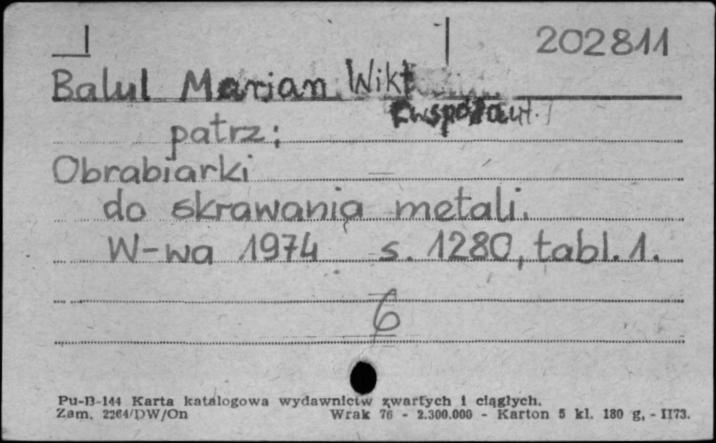 202811
Balul Marian Wikt
(współaut.)
patrz:
Obrabiarki
do skrawania metali.
W-wa 1974 s. 1280, tabl. 1.
6
Pu-B-144 Karta katalogowa wydawnictw zwartych i ciągłych.
Zam. 2264/DW/On Wrak 76 - 2.300.000 - Karton 5 kl. 180 g, - II73.